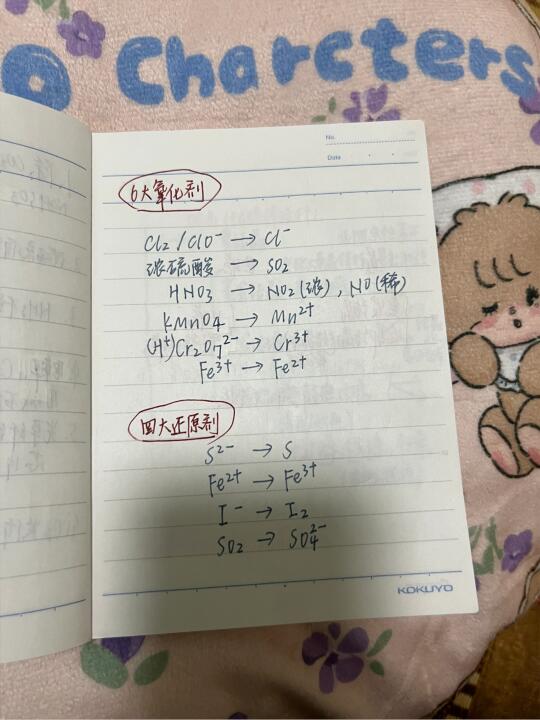 O Charcters
No.
Date
6大氧化剂
Cl2/ClO⁻ → Cl⁻
浓硫酸 → SO2
HNO3 → NO2(浓), NO(稀)
KMnO4 → Mn²⁺
(H⁺)Cr2O7²⁻ → Cr³⁺
Fe³⁺ → Fe²⁺
四大还原剂
S²⁻ → S
Fe²⁺ → Fe³⁺
I⁻ → I2
SO2 → SO4²⁻
KOKUYO